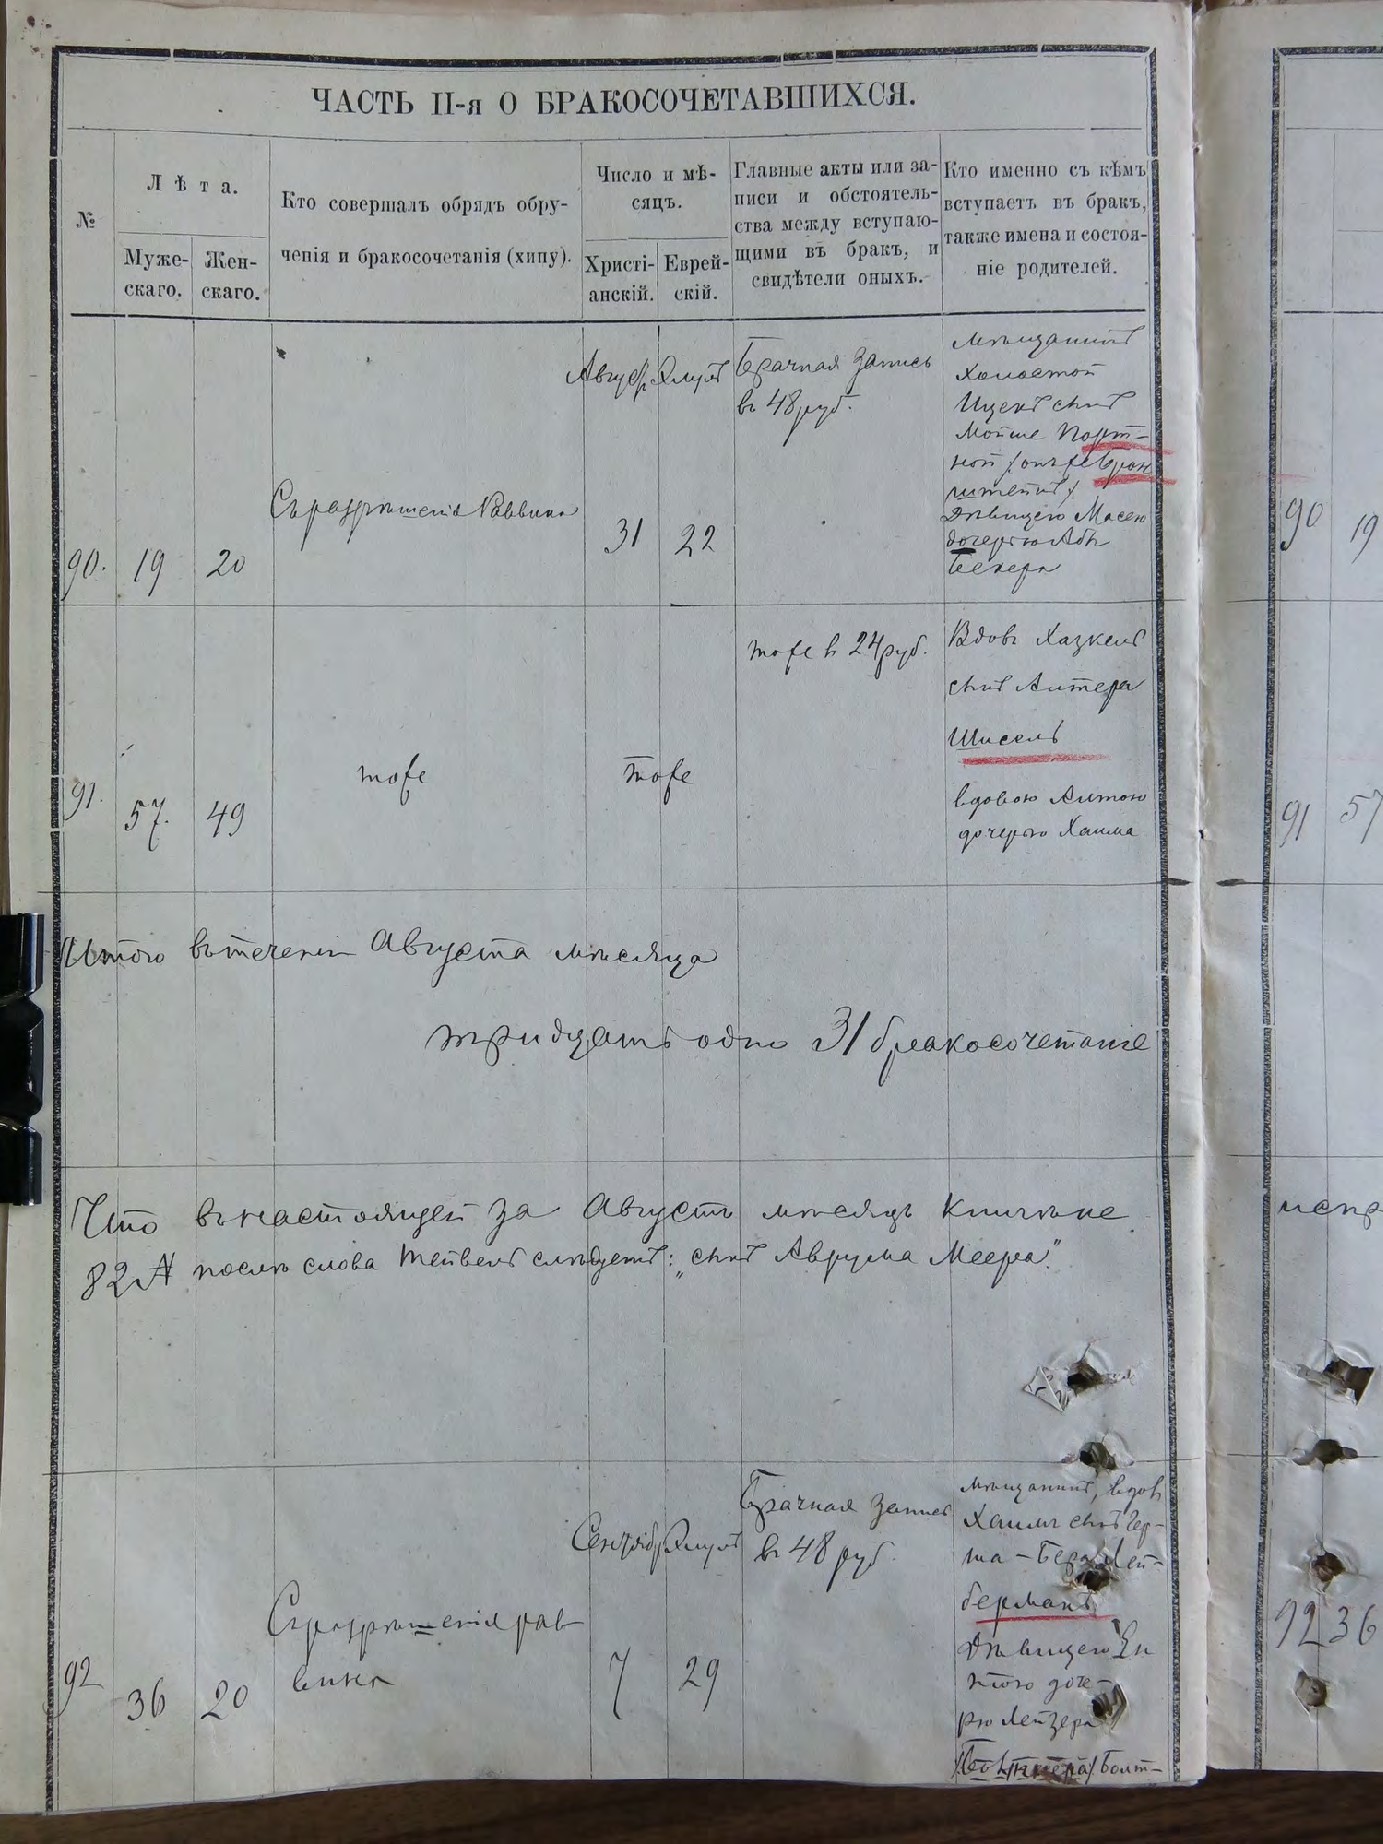 ЧАСТЬ II-я О БРАКОСОЧЕТАВШИХСЯ.
№
Лѣта.
Муже-
скаго.
Жен-
скаго.
Кто совершалъ обрядъ обру-
ченія и бракосочетанія (хипу).
Число и мѣ-
сяцъ.
Христі-
анскій.
Еврей-
скій.
Главные акты или за-
писи и обстоятель-
ства между вступаю-
щими въ бракъ, и
свидѣтели оныхъ.
Кто именно съ кѣмъ
вступаетъ въ бракъ,
также имена и состоя-
ніе родителей.
90.
19
20
Съ разрѣшенія Раввина
Август.
31
Элулъ
22
Брачная запись
въ 48 руб.
мѣщанинъ
холостой
Ицекъ сынъ
Мойше Порт-
ной
дѣвицею Масею
дочерью Абы
Бекера
91.
57.
49
тоже
тоже
тоже въ 24 руб.
Вдовъ Хаскель
сынъ Антера
Шисель
вдовою
дочерью Хаима
Итого въ теченіи Августа мѣсяца
тридцать одно 31 бракосочетаніе
Что въ настоящей за Августъ мѣсяцъ книжке
82 № послѣ слова Тейвель слѣдуетъ: „сынъ Аврума Меера"
92
36
20
Съ разрѣшенія рав
вина
Сентябр.
7
Элулъ
29
Брачная запись
въ 48 руб.
мѣщанинъ, вдовъ
Хаимъ сынъ Гер-
ша-Бера Лей-
берманъ
дѣвицею
доче-
рью Лейзера
90
19
91
57
92
36